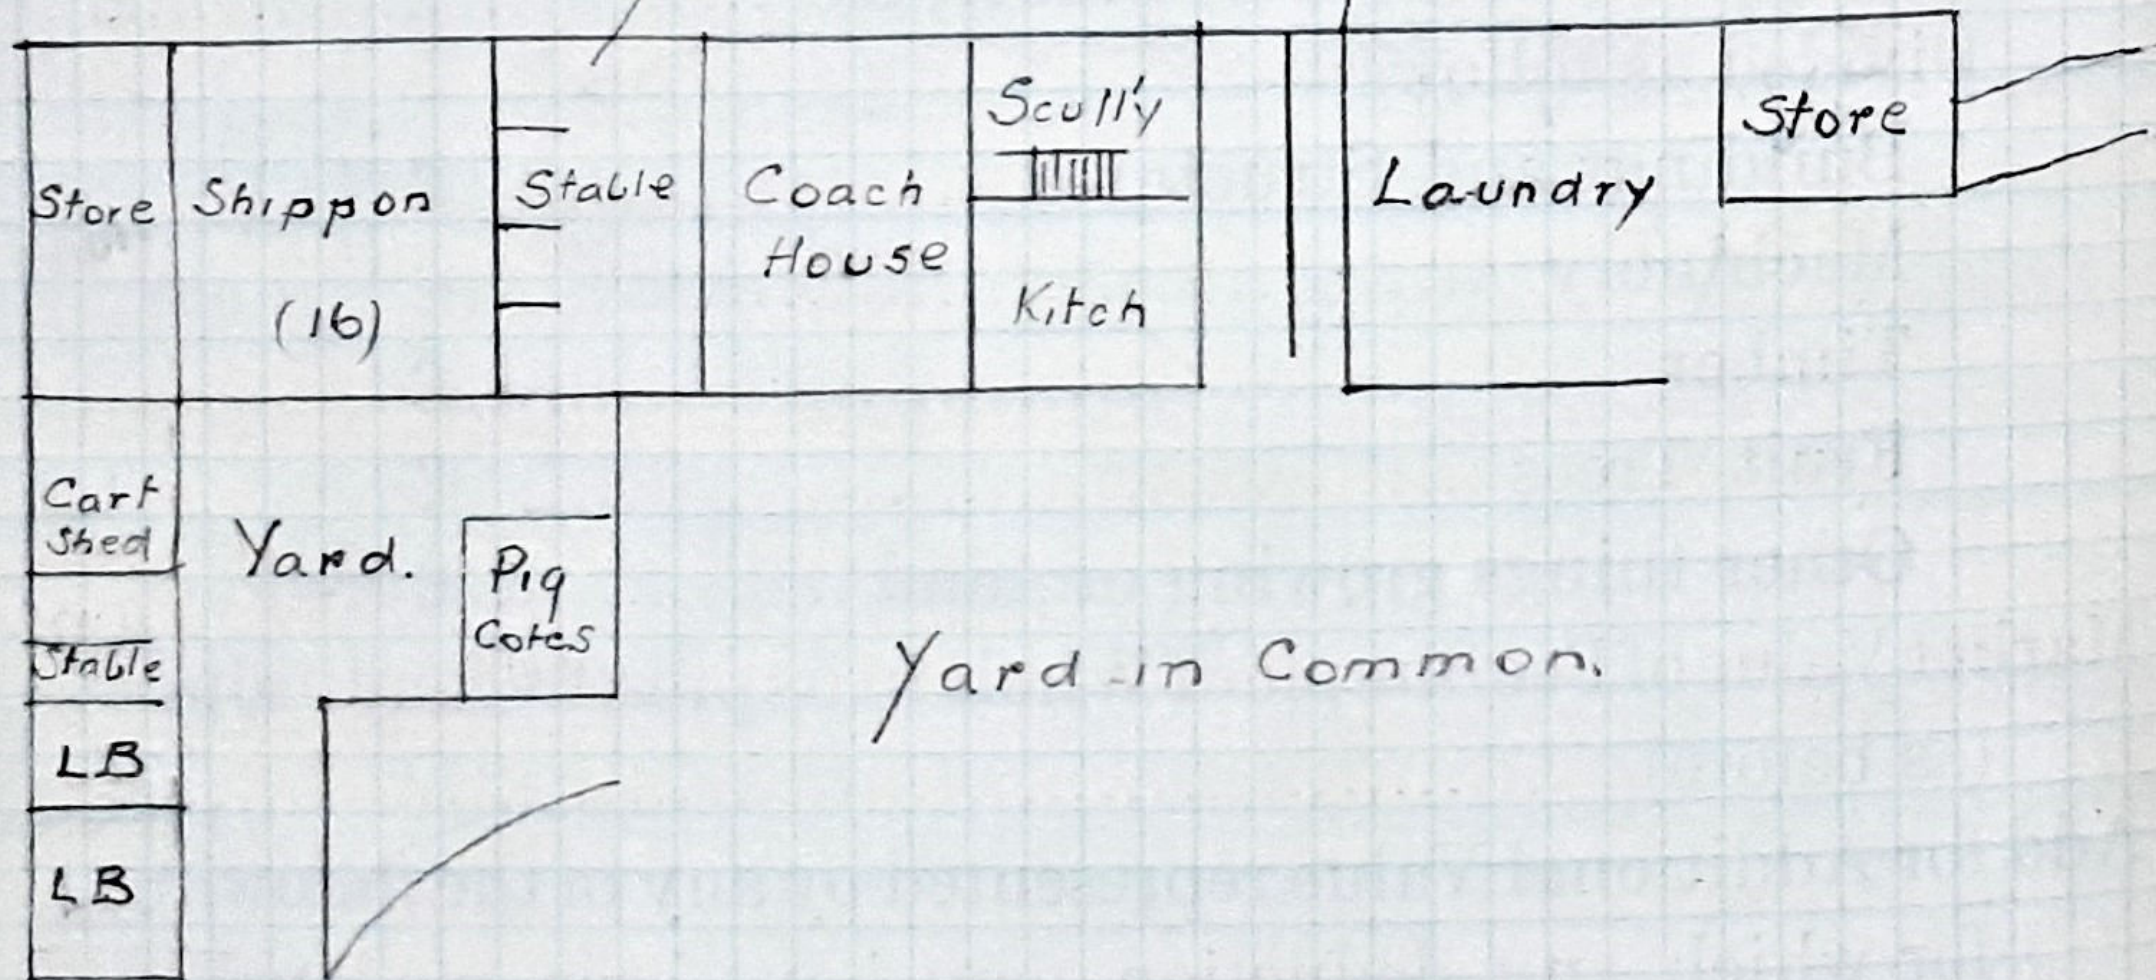 Store
Shippon
(16)
Stable
Coach
House
Scull'y
Kitch
Laundry
Store
Cart
Shed
Yard.
Pig
Cotes
Stable
LB
LB
Yard in Common.